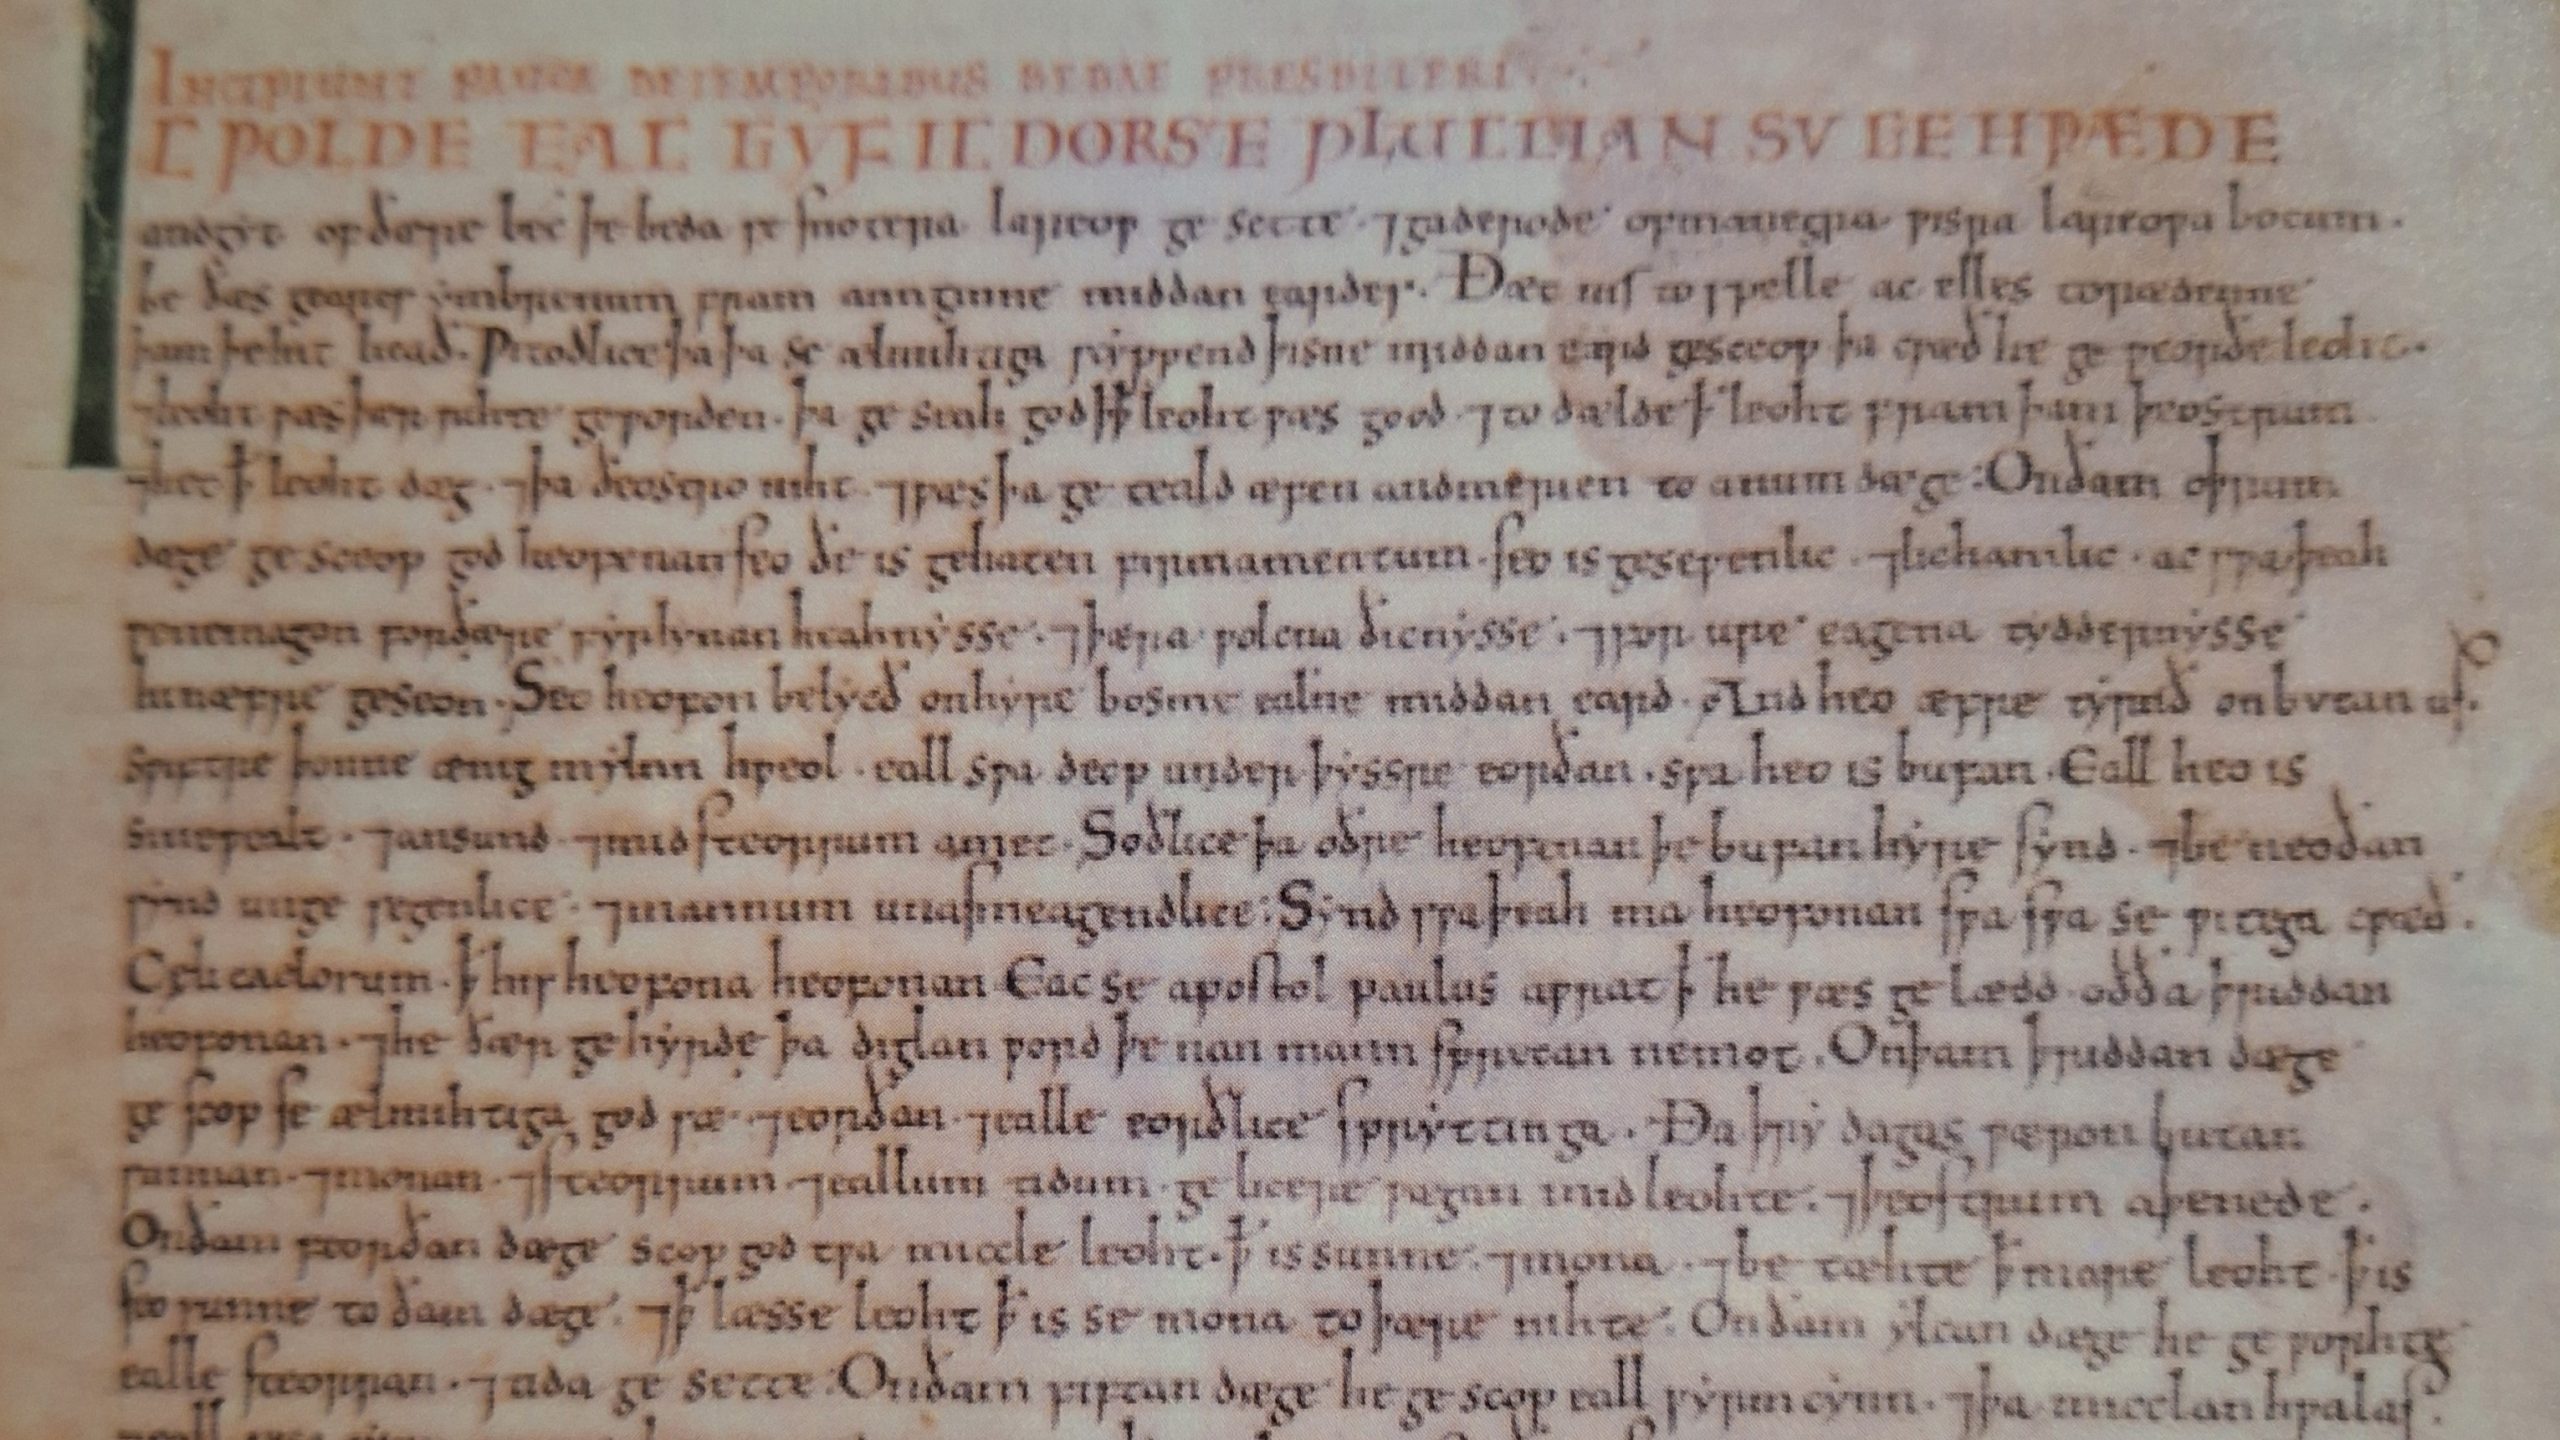 INCIPIUNT PAUCA DE TEMPORIBUS BEDAE PRESBITERI
IC ǷOLDE EAC GYF IC DORSTE PLUCCIAN SV GEHǷÆDE
andgyt of ðære bec þe beda se snotera lareoƿ ge sette · ⁊ gaderode of manegra ƿisra lareoƿa bocum ·
be ðæs geares ymbrenum fram anginne middan eardes · Ðæt nis to spelle ac elles to rædenne
þam þe hit licað · Ƿitodlice þa þa se ælmihtiga scyppend þisne middan eard gesceop þa cƿæð he ge ƿeorðe leoht ·
⁊ leoht ƿæs þær rihte geƿorden · þa ge seah god ꝥ ꝥ leoht ƿæs good · ⁊ to dælde ꝥ leoht fram þam þeostrum
⁊ het ꝥ leoht dæg · ⁊ þa ðeostro niht · ⁊ ƿæs þa ge teald æfen and merien to anum dæge : On ðam oþrum
dæge ge sceop god heofenan seo ðe is gehaten firmamentum · seo is geseƿenlic · ⁊ lichamlic · ac sƿa þeah
ƿe ne magon for ðære fyrlynan heahnysse · ⁊ þæra ƿolcna ðicnysse · ⁊ for ure eagena tyddernysse
hi næfre geseon · Seo heofon belycð on hyre bosme ealne middan eard · And heo æfre tyrnð onbvtan us ·
sƿiftre þonne ænig myln hƿeol · eall sƿa deop under þyssre eorðan · sƿa heo is bufan · Eall heo is
sineƿealt · ⁊ ansund · ⁊ mid steorrum amet · Soðlice þa oðre heofenan þe bufan hyre synd · ⁊ be neoðan
synd unge segenlice · ⁊ mannum unasmeagendlice : Synd sƿa þeah ma heofonan sƿa sƿa se ƿitega cƿæð ·
Celi caelorum · ꝥ his heofona heofonan Eac se apostol paulus aƿrat ꝥ he ƿæs ge lædd oðð a þriddan
heofonan · ⁊ he ðær ge hyrde þa diglan ƿord þe nan mann sprecan ne mot · On þam þriddan dæge
ge scop se ælmihtiga god sæ · ⁊ eorðan · ⁊ ealle eorðlice sprýttinga · Ða þry dagas ƿæron butan
sunnan · ⁊ monan · ⁊ steorrum ⁊ eallum tidum · ge licere ƿagan mid leohte · ⁊ þeostrum aþenede ·
On ðam feorðan dæge scop god tƿa miccle leoht · ꝥ is sunne · ⁊ mona · ⁊ be tæhte ꝥ mare leoht · ꝥ is
seo sunne to ðam dæge · ⁊ ꝥ læsse leoht ꝥ is se mona to þære nihte · On ðam ylcan dæge he ge ƿorhte
ealle steorran · ⁊ tida ge sette : On ðam fiftan dæge he ge scop eall ƿyrmcynn · ⁊ þa micclan hƿalas ·